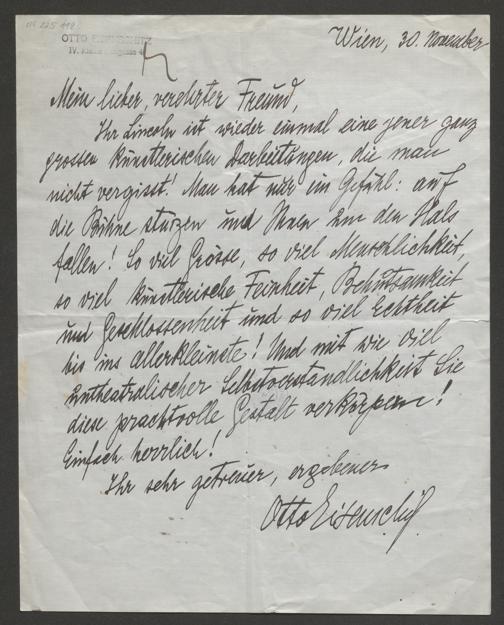 OTTO EISENSCHITZ
Wien, 30. November
Mein lieber, verehrter Freund,
Ihr Lincoln ist wieder einmal eine jener ganz
grossen künstlerischen Darbietungen, die man
nicht vergisst! Man hat nur ein Gefühl: auf
die Bühne stürzen und Ihnen um den Hals
fallen! So viel Grösse, so viel Menschlichkeit,
so viel künstlerische Feinheit, Behutsamkeit
und Geschlossenheit und so viel Echtheit
bis ins allerkleinste! Und mit wie viel
untheatralischer Selbstverständlichkeit Sie
diese prachtvolle Gestalt verkörpern!
Einfach herrlich!
Ihr sehr getreuer, ergebener
Otto Eisenschitz